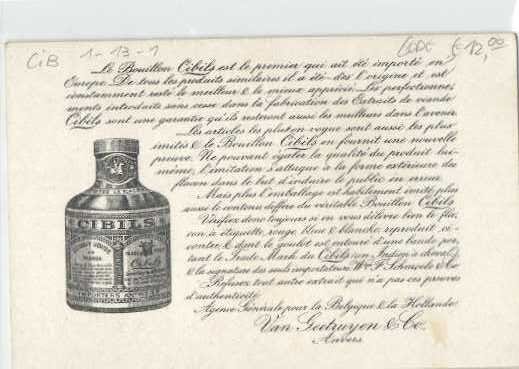 CiB 1-13-1 CODE € 12,00
Le Bouillon Cibils est le premier qui ait été importé en
Europe. De tous les produits similaires il a été dès l'origine et est
constamment resté le meilleur & le mieux apprécié. Les perfectionne-
ments introduits sans cesse dans la fabrication des Extraits de viande
Cibils sont une garantie qu'ils resteront aussi les meilleurs dans l'avenir.
Les articles les plus en vogue sont aussi les plus
imités & le Bouillon Cibils en fournit une nouvelle
preuve. Ne pouvant égaler la qualité du produit lui-
même, l'imitation s'attaque à la forme extérieure du
flacon dans le but d'induire le public en erreur.
Mais plus l'emballage est habilement imité plus
aussi le contenu diffère du véritable Bouillon Cibils
Vérifiez donc toujours si on vous délivre bien le fla-
con à étiquette, rouge bleu & blanche, reproduit ci-
contre, & dont le goulot est entouré d'une bande por-
tant le Trade Mark des Cibils (un Indien à cheval)
& la signature des seuls importateurs Wm F. Schmoele & Co
Refusez tout autre extrait qui n'a pas ces preuves
d'authenticité.
Agence Générale pour la Belgique & la Hollande
Van Geetruyen & Co.
Anvers
CIBILS